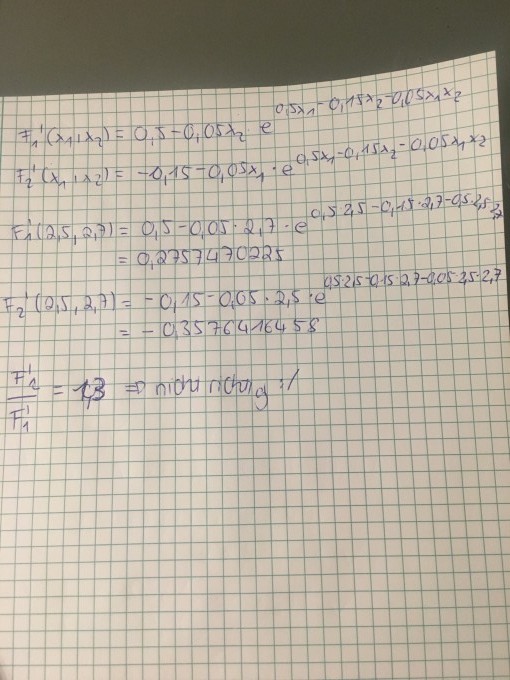 F₁'(x₁,x₂) = 0,5-0,05x₂ e^0,5x₁-0,15x₂-0,05x₁x₂
F₂'(x₁,x₂) = -0,15-0,05x₁·e^0,5x₁-0,15x₂-0,05x₁x₂
F₁'(2,5,2,7) = 0,5-0,05·2,7·e^0,5·2,5-0,15·2,7-0,5·2,5·2,7
= 0,2757470225
F₂'(2,5,2,7) = -0,15-0,05·2,5·e^0,5·2,5-0,15·2,7-0,05·2,5·2,7
= -0,3576416458
F₂'/F₁' = 1,3 ⇒ nicht richtig :/